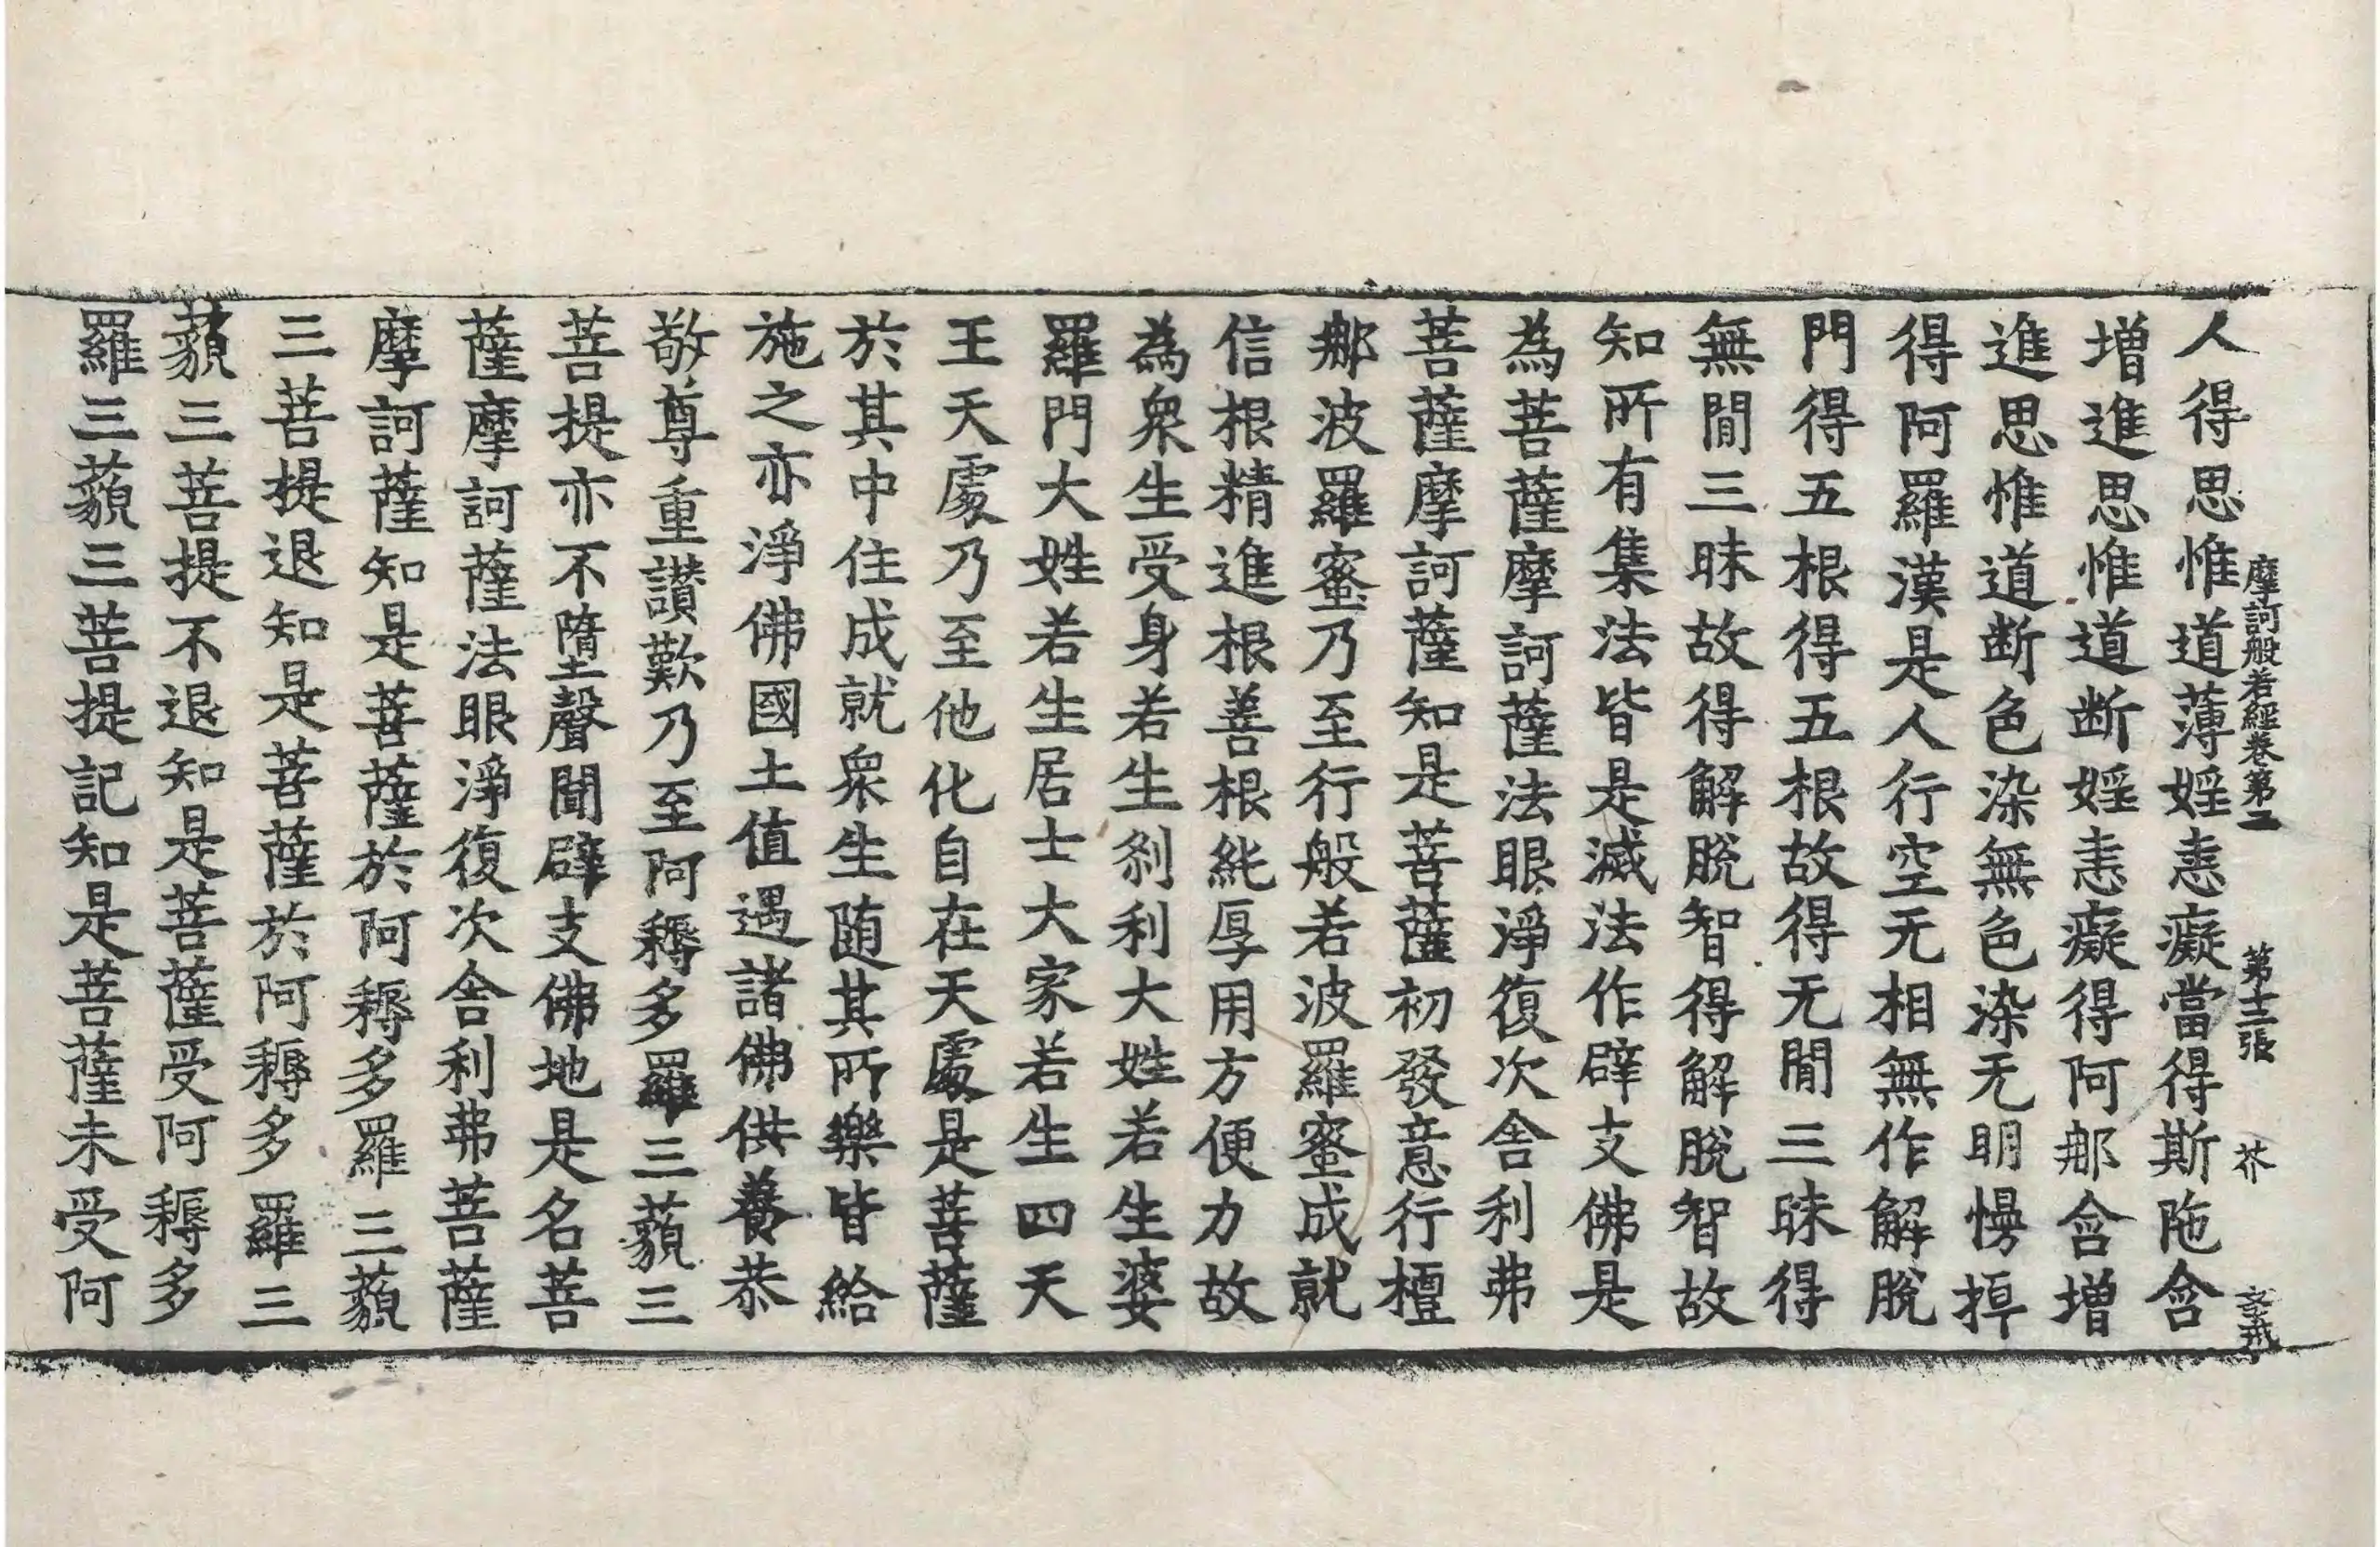 摩訶般若經卷第二　第十三張　芥
人得思惟道薄婬恚癡當得斯陁含
增進思惟道断婬恚癡得阿那含增
進思惟道断色染無色染无明慢掉
得阿羅漢是人行空无相無作解脫
門得五根得五根故得无閒三昧得
無閒三昧故得解脫智得解脫智故
知所有集法皆是滅法作辟支佛是
為菩薩摩訶薩法眼淨復次舍利弗
菩薩摩訶薩知是菩薩初發意行檀
那波羅蜜乃至行般若波羅蜜成就
信根精進根善根純厚用方便力故
為衆生受身若生刹利大姓若生婆
羅門大姓若生居士大家若生四天
王天處乃至他化自在天處是菩薩
於其中住成就衆生随其所樂皆給
施之亦淨佛國土值遇諸佛供養恭
敬尊重讃歎乃至阿耨多羅三藐三
菩提亦不墮聲聞辟支佛地是名菩
薩摩訶薩法眼淨復次舍利弗菩薩
摩訶薩知是菩薩於阿耨多羅三藐
三菩提退知是菩薩於阿耨多羅三
藐三菩提不退知是菩薩受阿耨多
羅三藐三菩提記知是菩薩未受阿